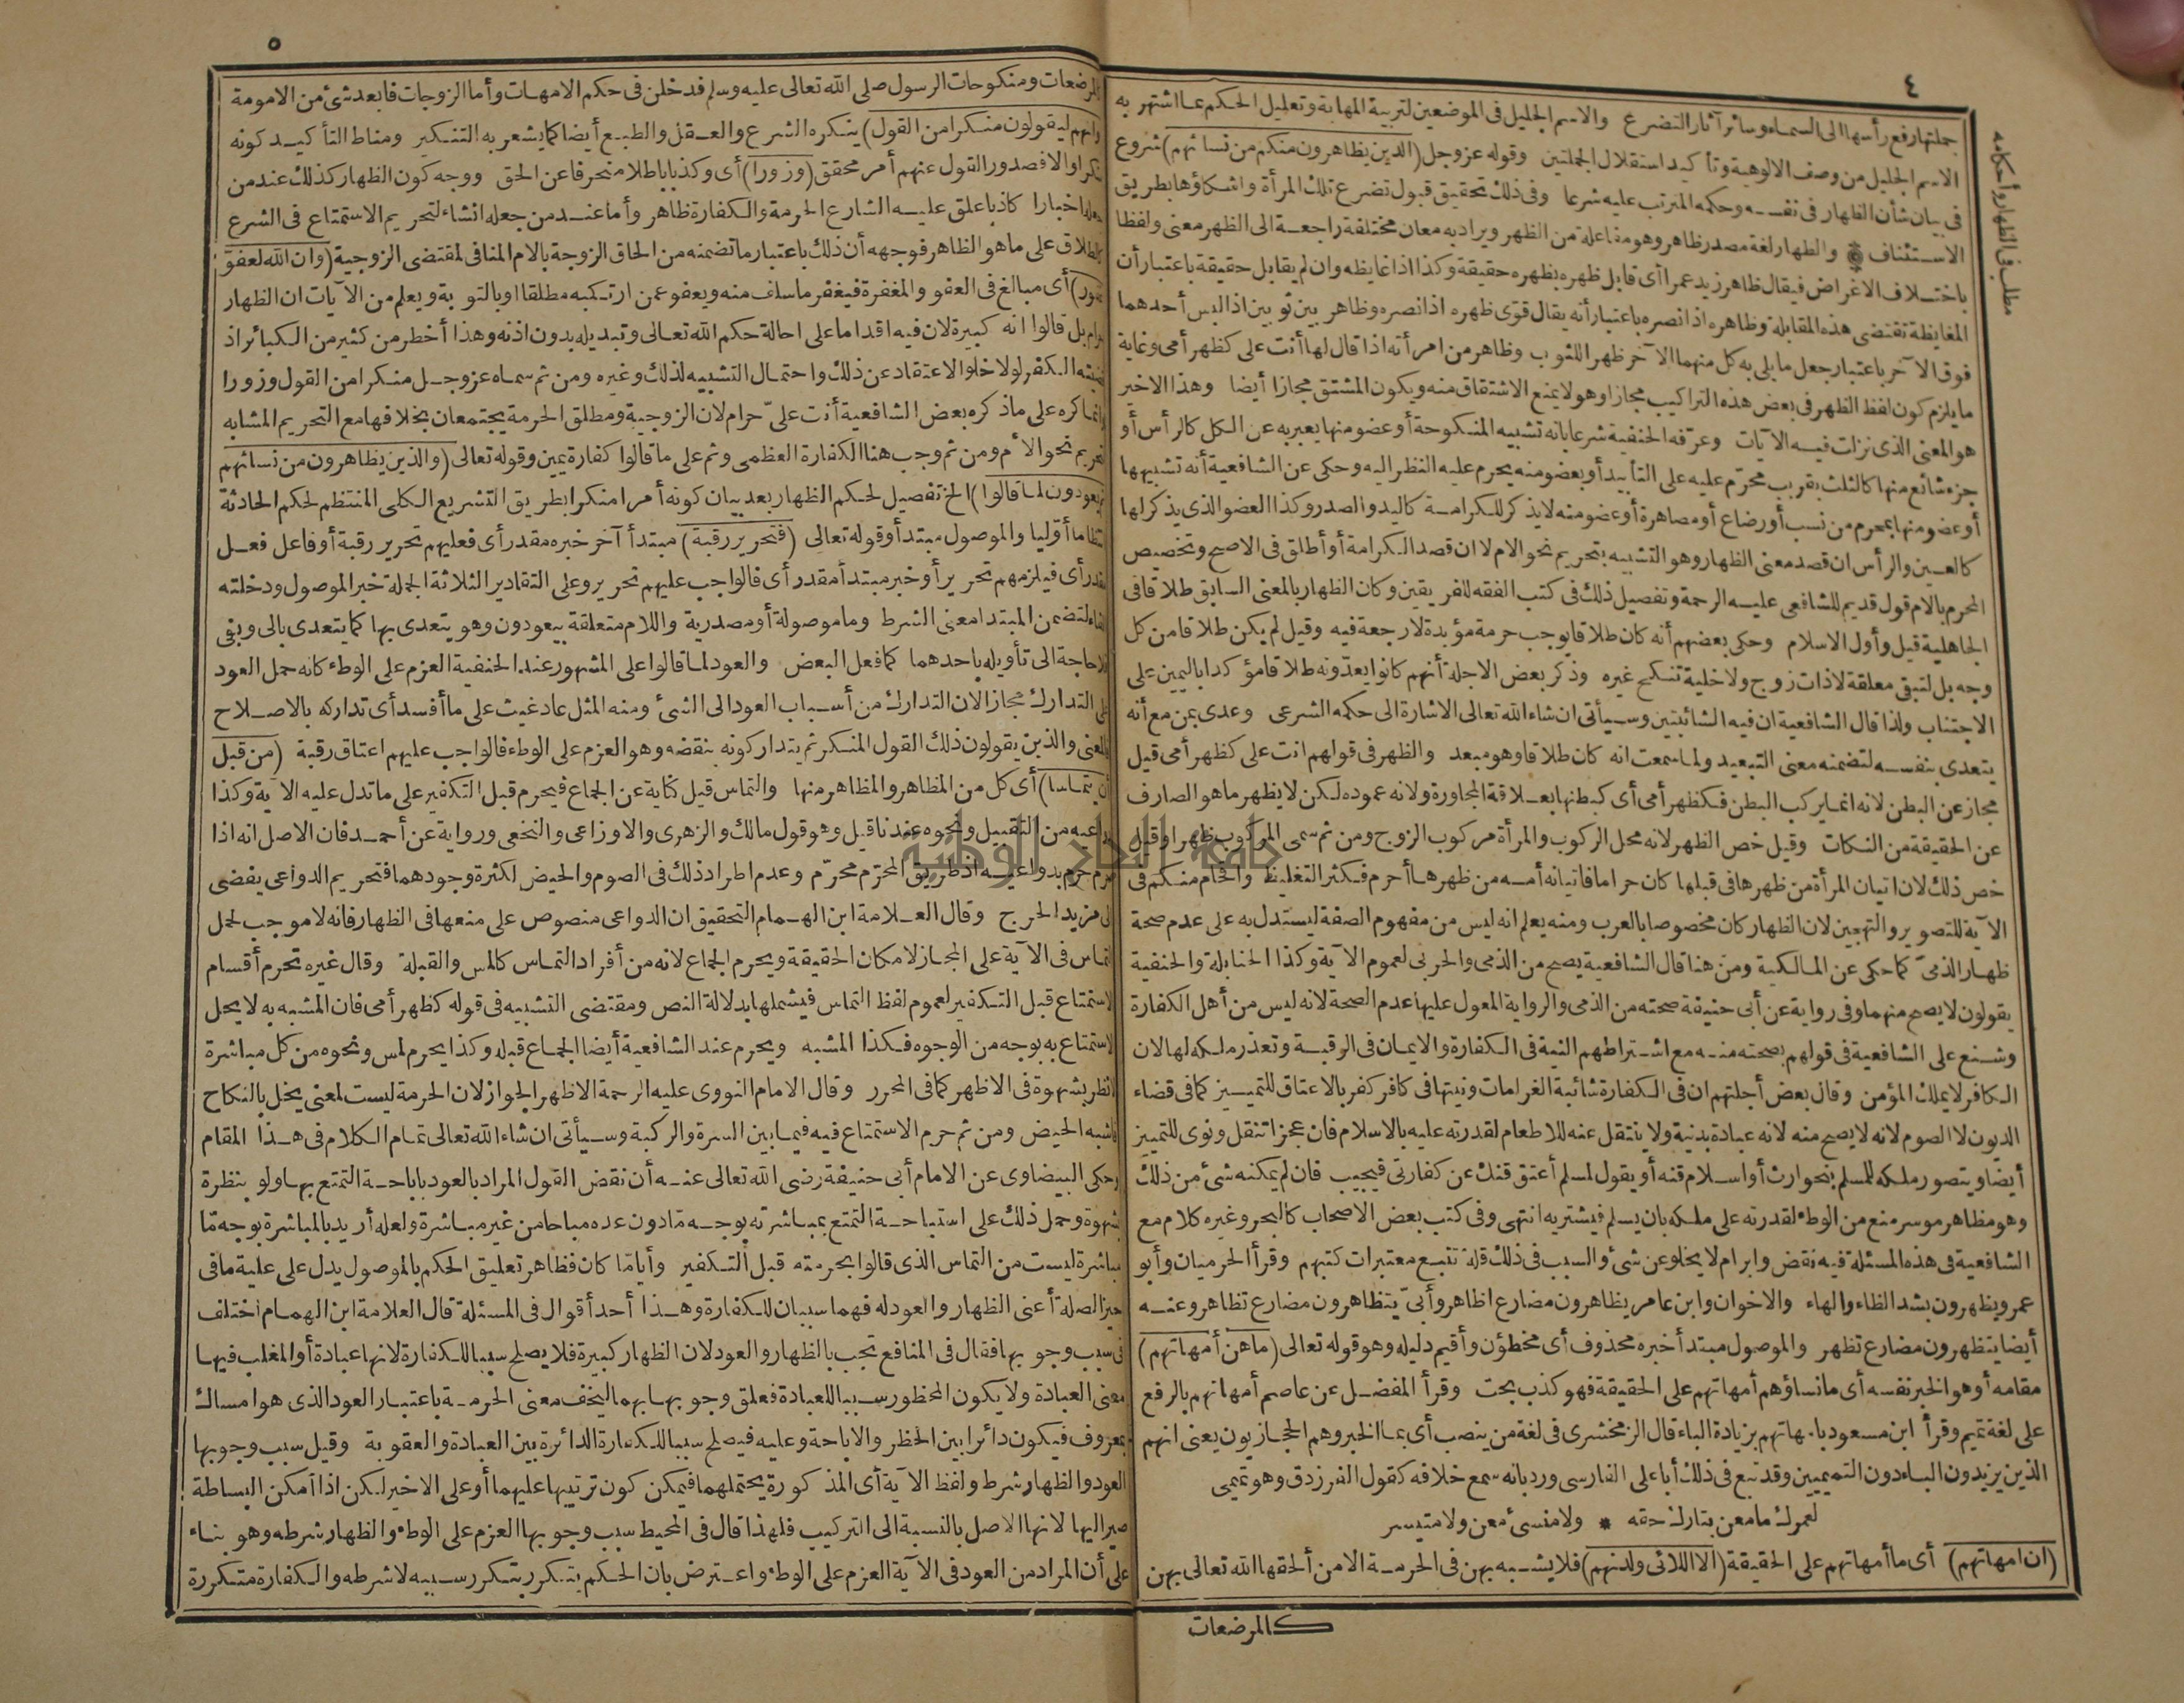 ٤
جملتها رفع رأسها الى السماء وسائر آثار التضرع والاسم الجليل فى الموضعين لتربية المهابة وتعليل الحكم بما اشتهر به
الاسم الجليل من وصف الالوهية وتأكيد استقلال الجملتين وقوله عز وجل (الذين يظاهرون منكم من نسائهم) شروع
فى بيان شأن الظهار فى نفسه وحكمه المترتب عليه شرعا وفى ذلك تحقيق قبول تضرع تلك المرأة واشكاؤها بطريق
الاستئناف والظهار لغة مصدر ظاهر وهو مفاعلة من الظهر ويراد به معان مختلفة راجعة الى الظهر معنى ولفظا
باختلاف الاغراض فيقال ظاهر زيد عمرا أى قابل ظهره بظهره حقيقة وكذا اذا غايظه وان لم يقابل حقيقة باعتبار أن
المغايظة تقتضى هذه المقابلة وظاهره اذا نصره باعتبار أنه يقال قوى ظهره اذا نصره وظاهر بين ثوبين اذا لبس أحدهما
فوق الآخر باعتبار جعل ما يلى به كل منهما الآخر ظهرا للثوب وظاهر من امرأته اذا قال لها أنت على كظهر أمى وغاية
ما يلزم كون لفظ الظهر فى بعض هذه التراكيب مجازا وهو لا يمنع الاشتقاق منه ويكون المشتق مجازا أيضا وهذا الاخير
هو المعنى الذى نزلت فيه الآيات وعرّفه الحنفية شرعا بانه تشبيه المنكوحة أو عضو منها يعبر به عن الكل كالرأس أو
جزء شائع منها كالثلث بقريب محرّم عليه على التأبيد أو بعضو منه يحرم عليه النظر اليه وحكى عن الشافعية أنه تشبيهها
أو عضو منها بمحرم من نسب أو رضاع أو مصاهرة أو عضو منه لا يذكر للكرامة كاليد والصدر وكذا العضو الذى يذكر لها
كالعين والرأس ان قصد معنى الظهار وهو التشبيه بتحريم نحو الام لا ان قصد الكرامة أو أطلق فى الاصح وتخصيص
المحرم بالام قول قديم للشافعى عليه الرحمة وتفصيل ذلك فى كتب الفقه للفريقين وكان الظهار بالمعنى السابق طلاقا فى
الجاهلية قيل وأول الاسلام وحكى بعضهم أنه كان طلاقا يوجب حرمة مؤبدة لا رجعة فيه وقيل لم يكن طلاقا من كل
وجه بل لتبقى معلقة لا ذات زوج ولا خلية تنكح غيره وذكر بعض الاجلة أنهم كانوا يعدّونه طلاقا مؤكدا باليمين على
الاجتناب ولذا قال الشافعية ان فيه الشائبتين وسيأتى ان شاء الله تعالى الاشارة الى حكمه الشرعى وعدى بمن مع أنه
يتعدى بنفسه لتضمنه معنى التبعيد ولما سمعت انه كان طلاقا وهو مبعد والظهر فى قولهم انت على كظهر أمى قيل
مجاز عن البطن لانه انما يركب البطن فكظهر أمى أى كبطنها بعلاقة المجاورة ولانه عموده لكن لا يظهر ما هو الصارف
عن الحقيقة من النكات وقيل خص الظهر لانه محل الركوب والمرأة مركوب الزوج ومن ثم سمى المركوب ظهرا وقيل
خص ذلك لان اتيان المرأة من ظهرها فى قبلها كان حراما فاتيانه أمه من ظهرها أحرم فكثر التغليظ واقحام منكم فى
الآية للتصوير والتهجين لان الظهار كان مخصوصا بالعرب ومنه يعلم انه ليس من مفهوم الصفة ليستدل به على عدم صحة
ظهار الذمىّ كما حكى عن المالكية ومن هنا قال الشافعية يصح من الذمى والحربى لعموم الآية وكذا الحنابلة والحنفية
يقولون لا يصح منهما وفى رواية عن أبى حنيفة صحته من الذمى والرواية المعول عليها عدم الصحة لانه ليس من أهل الكفارة
وشنع على الشافعية فى قولهم بصحته منه مع اشتراطهم النية فى الكفارة والايمان فى الرقبة وتعذر ملكه لها لان
الكافر لا يملك المؤمن وقال بعض أجلتهم ان فى الكفارة شائبة الغرامات ونيتها فى كافر كفر بالاعتاق للتمييز كما فى قضاء
الديون لا الصوم لانه لا يصح منه لانه عبادة بدنية ولا ينتقل عنه للاطعام لقدرته عليه بالاسلام فان عجز انتقل ونوى للتمييز
أيضا ويتصور ملكه للمسلم بنحو ارث أو اسلام قنه أو يقول لمسلم أعتق قنك عن كفارتى فيجيب فان لم يمكنه شئ من ذلك
وهو مظاهر موسر منع من الوطء لقدرته على ملكه بان يسلم فيشتريه انتهى وفى كتب بعض الاصحاب كالبحر وغيره كلام مع
الشافعية فى هذه المسئلة فيه نقض وابرام لا يخلو عن شئ والسبب فى ذلك قلة تتبع معتبرات كتبهم وقرأ الحرميان وأبو
عمرو يظهرون بشد الظاء والهاء والاخوان وابن عامر يظاهرون مضارع اظاهر وأبىّ يتظاهرون مضارع تظاهر وعنه
أيضا يتظهرون مضارع تظهر والموصول مبتدأ خبره محذوف أى مخطؤن وأقيم دليله وهو قوله تعالى (ما هن أمهاتهم)
مقامه أو هو الخبر نفسه أى ما نساؤهم أمهاتهم على الحقيقة فهو كذب بحت وقرأ المفضل عن عاصم أمهاتهم بالرفع
على لغة تميم وقرأ ابن مسعود بامهاتهم بزيادة الباء قال الزمخشرى فى لغة من ينصب أى بما الخبر وهم الحجازيون يعنى انهم
الذين يزيدون الباء دون التميميين وقد تبع فى ذلك أبا على الفارسى ورد بانه سمع خلافه كقول الفرزدق وهو تميمى
لعمرك ما معن بتارك حقه * ولا منسئ معن ولا متيسر
(ان امهاتهم) أى ما أمهاتهم على الحقيقة (الا اللائى ولدنهم) فلا يشبه بهن فى الحرمة الا من ألحقها الله تعالى بهن
كالمرضعات
مطلب فى الظهار وأحكامه
٥
كالمرضعات ومنكوحات الرسول صلى الله تعالى عليه وسلم فدخلن فى حكم الامهات وأما الزوجات فابعد شئ من الامومة
وانهم ليقولون منكرا من القول) ينكره الشرع والعقل والطبع أيضا كما يشعر به التنكير ومناط التأكيد كونه
منكرا والا فصدور القول عنهم أمر محقق (وزورا) أى وكذبا باطلا منحرفا عن الحق ووجه كون الظهار كذلك عند من
جعله اخبارا كاذبا علق عليه الشارع الحرمة والكفارة ظاهر وأما عند من جعله انشاء لتحريم الاستمتاع فى الشرع
كالطلاق على ما هو الظاهر فوجهه أن ذلك باعتبار ما تضمنه من الحاق الزوجة بالام المنافى لمقتضى الزوجية (وان الله لعفو
غفور) أى مبالغ فى العفو والمغفرة فيغفر ما سلف منه ويعفو عمن ارتكبه مطلقا او بالتوبة ويعلم من الآيات ان الظهار
حرام بل قالوا انه كبيرة لان فيه اقداما على احالة حكم الله تعالى وتبديله بدون اذنه وهذا أخطر من كثير من الكبائر اذ
قضيته الكفر لولا خلو الاعتقاد عن ذلك واحتمال التشبيه لذلك وغيره ومن ثم سماه عز وجل منكرا من القول وزورا
وانما كره على ما ذكره بعض الشافعية أنت علىّ حرام لان الزوجية ومطلق الحرمة يجتمعان بخلافها مع التحريم المشابه
لتحريم نحو الأم ومن ثم وجب هنا الكفارة العظمى وثم على ما قالوا كفارة يمين وقوله تعالى (والذين يظاهرون من نسائهم
ثم يعودون لما قالوا) الخ تفصيل لحكم الظهار بعد بيان كونه أمرا منكرا بطريق التشريع الكلى المنتظم لحكم الحادثة
انتظاما أوّليا والموصول مبتدأ وقوله تعالى (فتحرير رقبة) مبتدأ آخر خبره مقدر أى فعليهم تحرير رقبة أو فاعل فعل
مقدر أى فيلزمهم تحرير أو خبر مبتدأ مقدر أى فالواجب عليهم تحرير وعلى التقادير الثلاثة الجملة خبر الموصول ودخلته
الفاء لتضمن المبتدا معنى الشرط وما موصولة أو مصدرية واللام متعلقة بيعودون وهو يتعدى بها كما يتعدى بالى وبفى
فلا حاجة الى تأويله باحدهما كما فعل البعض والعود لما قالوا على المشهور عند الحنفية العزم على الوطء كانه حمل العود
على التدارك مجازا لان التدارك من أسباب العود الى الشئ ومنه المثل عاد غيث على ما أفسد أى تداركه بالاصلاح
فالمعنى والذين يقولون ذلك القول المنكر ثم يتداركونه بنقضه وهو العزم على الوطء فالواجب عليهم اعتاق رقبة (من قبل
أن يتماسا) أى كل من المظاهر والمظاهر منها والتماس قيل كناية عن الجماع فيحرم قبل التكفير على ما تدل عليه الآية وكذا
دواعيه من التقبيل ونحوه عندنا قيل وهو قول مالك والزهرى والاوزاعى والنخعى ورواية عن أحمد فان الاصل انه اذا
حرم حرم بدواعيه اذ طريق المحرّم محرّم وعدم اطراد ذلك فى الصوم والحيض لكثرة وجودهما فتحريم الدواعى يفضى
الى مزيد الحرج وقال العلامة ابن الهمام التحقيق ان الدواعى منصوص على منعها فى الظهار فانه لا موجب لحمل
التماس فى الآية على المجاز لامكان الحقيقة ويحرم الجماع لانه من أفراد التماس كالمس والقبلة وقال غيره تحرم أقسام
الاستمتاع قبل التكفير لعموم لفظ التماس فيشملها بدلالة النص ومقتضى التشبيه فى قوله كظهر أمى فان المشبه به لا يحل
الاستمتاع به بوجه من الوجوه فكذا المشبه ويحرم عند الشافعية أيضا الجماع قبله وكذا يحرم لمس ونحوه من كل مباشرة
لانظر بشهوة فى الاظهر كما فى المحرر وقال الامام النووى عليه الرحمة الاظهر الجواز لان الحرمة ليست لمعنى يخل بالنكاح
فاشبه الحيض ومن ثم حرم الاستمتاع فيه فيما بين السرة والركبة وسيأتى ان شاء الله تعالى تمام الكلام فى هذا المقام
وحكى البيضاوى عن الامام أبى حنيفة رضى الله تعالى عنه أن نقض القول المراد بالعود باباحة التمتع بها ولو بنظرة
بشهوة وحمل ذلك على استباحة التمتع بمباشرته بوجه مّا دون عده مباحا من غير مباشرة ولعله أريد بالمباشرة بوجه مّا
مباشرة ليست من التماس الذى قالوا بحرمته قبل التكفير وأيا مّا كان فظاهر تعليق الحكم بالموصول يدل على علية ما فى
حيز الصلة أعنى الظهار والعود له فهما سببان للكفارة وهذا أحد أقوال فى المسئلة قال العلامة ابن الهمام اختلف
فى سبب وجوبها فقال فى المنافع تجب بالظهار والعود لان الظهار كبيرة فلا يصلح سببا للكفارة لانها عبادة أو المغلب فيها
معنى العبادة ولا يكون المحظور سببا للعبادة فعلق وجوبها بهما ليخف معنى الحرمة باعتبار العود الذى هو امساك
بمعروف فيكون دائرا بين الحظر والاباحة وعليه فيصلح سببا للكفارة الدائرة بين العبادة والعقوبة وقيل سبب وجوبها
العود والظهار شرط ولفظ الآية أى المذكورة يحتملهما فيمكن كون ترتيبها عليهما أو على الاخير لكن اذا أمكن البساطة
صير اليها لانها الاصل بالنسبة الى التركيب فلهذا قال فى المحيط سبب وجوبها العزم على الوطء والظهار شرطه وهو بناء
على أن المراد من العود فى الآية العزم على الوطء واعترض بان الحكم يتكرر بتكرر سببه لا شرطه والكفارة متكررة
جامعة النجاح الوطنية